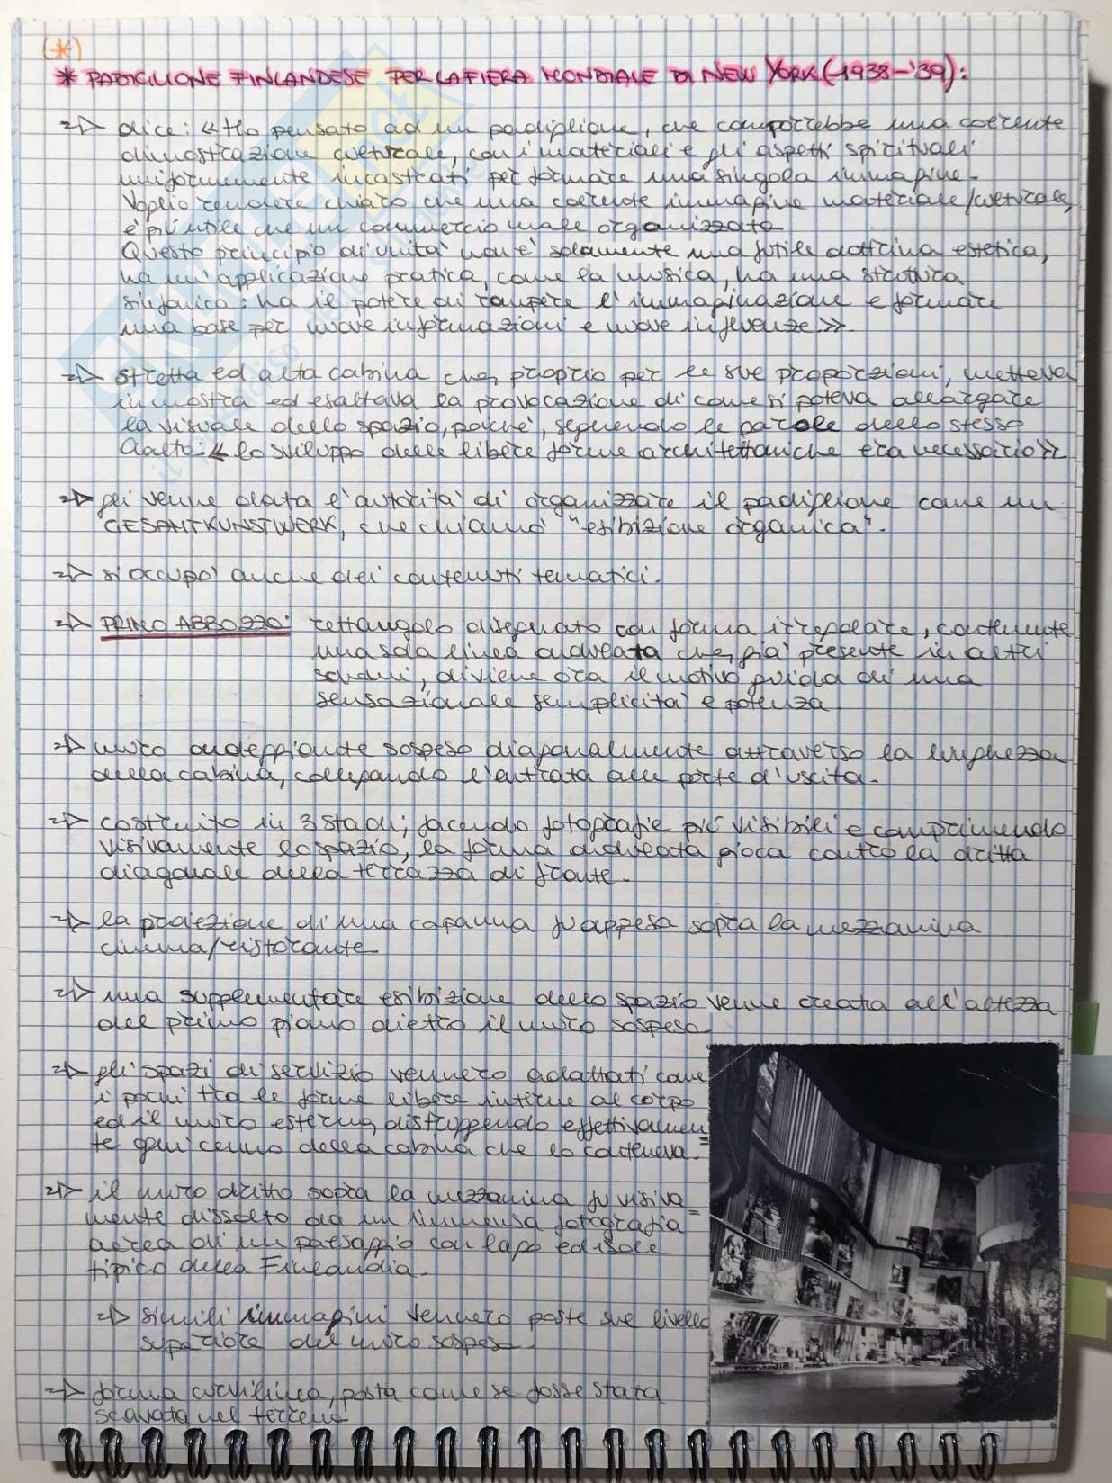 (*)
* PADIGLIONE FINLANDESE PER LA FIERA MONDIALE DI NEW YORK (1938-'39):
=> dice: «Ho pensato ad un padiglione, che comporrebbe una coerente
dimostrazione culturale, con i materiali e gli aspetti spirituali
uniformemente incastrati per formare una singola immagine.
Voglio rendere chiaro che una coerente immagine materiale/culturale,
è più utile che un commercio male organizzato
Questo principio di unità non è solamente una futile dottrina estetica,
ha un'applicazione pratica, come la musica, ha una struttura
sinfonica: ha il potere di rompere l'immaginazione e formare
una base per nuove informazioni e nuove influenze».
=> stretta ed alta cabina che, proprio per le sue proporzioni, metteva
in mostra ed esaltava la provocazione di come si poteva allargare
la visuale dello spazio, poiché, seguendo le parole dello stesso
Aalto: «lo sviluppo delle libere forme architettoniche era necessario»
=> gli venne data l'autorità di organizzare il padiglione come un
GESAMTKUNSTWERK, che chiamò "esibizione organica".
=> si occupò anche dei contenuti tematici.
=> PRIMO ABBOZZO: rettangolo disegnato con forma irregolare, contenente
una sola linea ondulata che, già presente in altri
, diviene ora il motivo guida di una
sensazionale semplicità e potenza
=> muro ondeggiante sospeso diagonalmente attraverso la lunghezza
della cabina, collegando l'entrata alle porte d'uscita.
=> costruito in 3 stadi; facendo fotografie più visibili e comprimendo
visivamente lo spazio, la forma ondulata gioca contro la dritta
diagonale della terrazza di fronte.
=> la proiezione di una capanna fu appesa sopra la mezzanina
cinema/ristorante
=> una supplementare esibizione dello spazio venne creata all'altezza
del primo piano dietro il muro sospeso
=> gli spazi di servizio vennero adattati come
i pochi tra le forme libere interne al corpo
ed il muro esterno, distruggendo effettivamen=
te ogni cenno della cabina che lo conteneva.
=> il muro dritto sopra la mezzanina fu visiva=
mente dissolto da un'immensa fotografia
aerea di un paesaggio con lago ed isole
tipico della Finlandia.
=> simili immagini vennero poste sul livello
superiore del muro sospeso.
=> forma curvilinea, posta come se fosse stata
scavata nel terreno